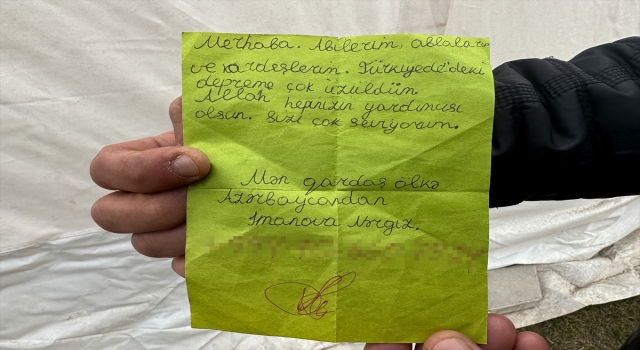 Merhaba. Abilerim, ablalarım
ve kardeşlerim. Türkiyede'deki
depreme çok üzüldüm
Allah hepnizin yardımcısı
olsun. Sizi çok seviyorum.
Mən qardaş ölkə
Azərbaycandan
İmanova Nərgiz.